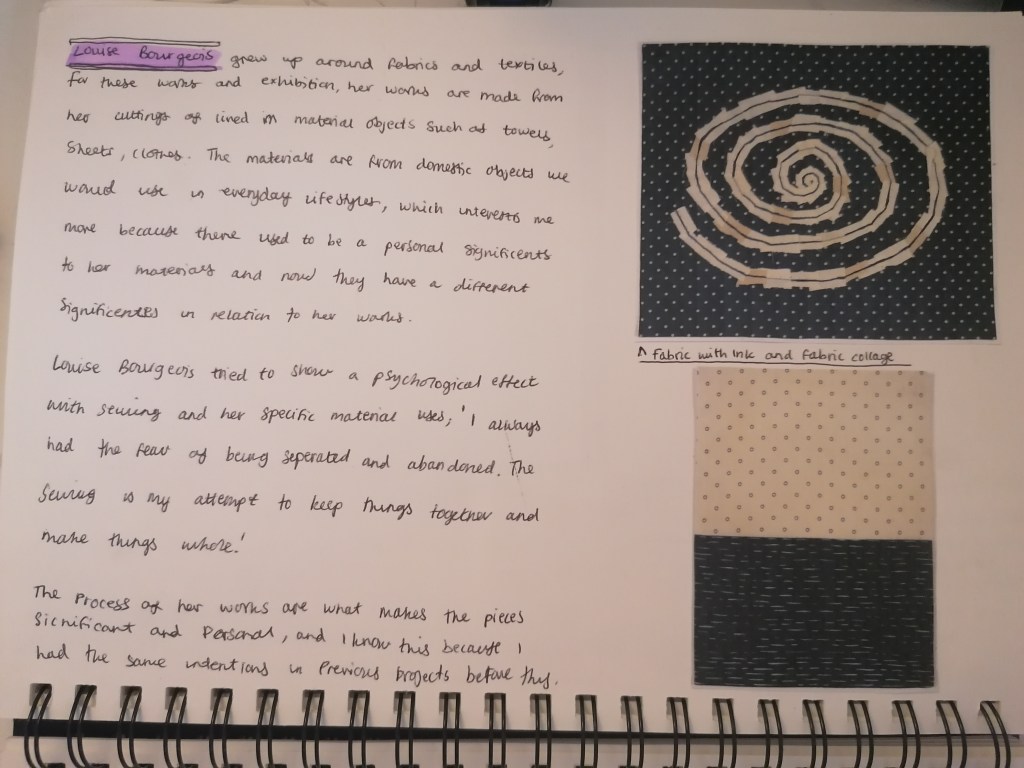 Louise Bourgeois grew up around fabrics and textiles,
for these works and exhibition, her works are made from
her cuttings of lined in material objects such as towels,
sheets, clothes. The materials are from domestic objects we
would use in everyday lifestyles, which interests me
more because there used to be a personal significents
to her materials and now they have a different
significentes in relation to her works.
Louise Bourgeois tried to show a psychological effect
with sewing and her specific material uses; 'I always
had the fear of being seperated and abandoned. The
sewing is my attempt to keep things together and
make things whole.'
The process of her works are what makes the pieces
significant and personal, and I know this because I
had the same intentions in previous projects before this.
^ fabric with ink and fabric collage